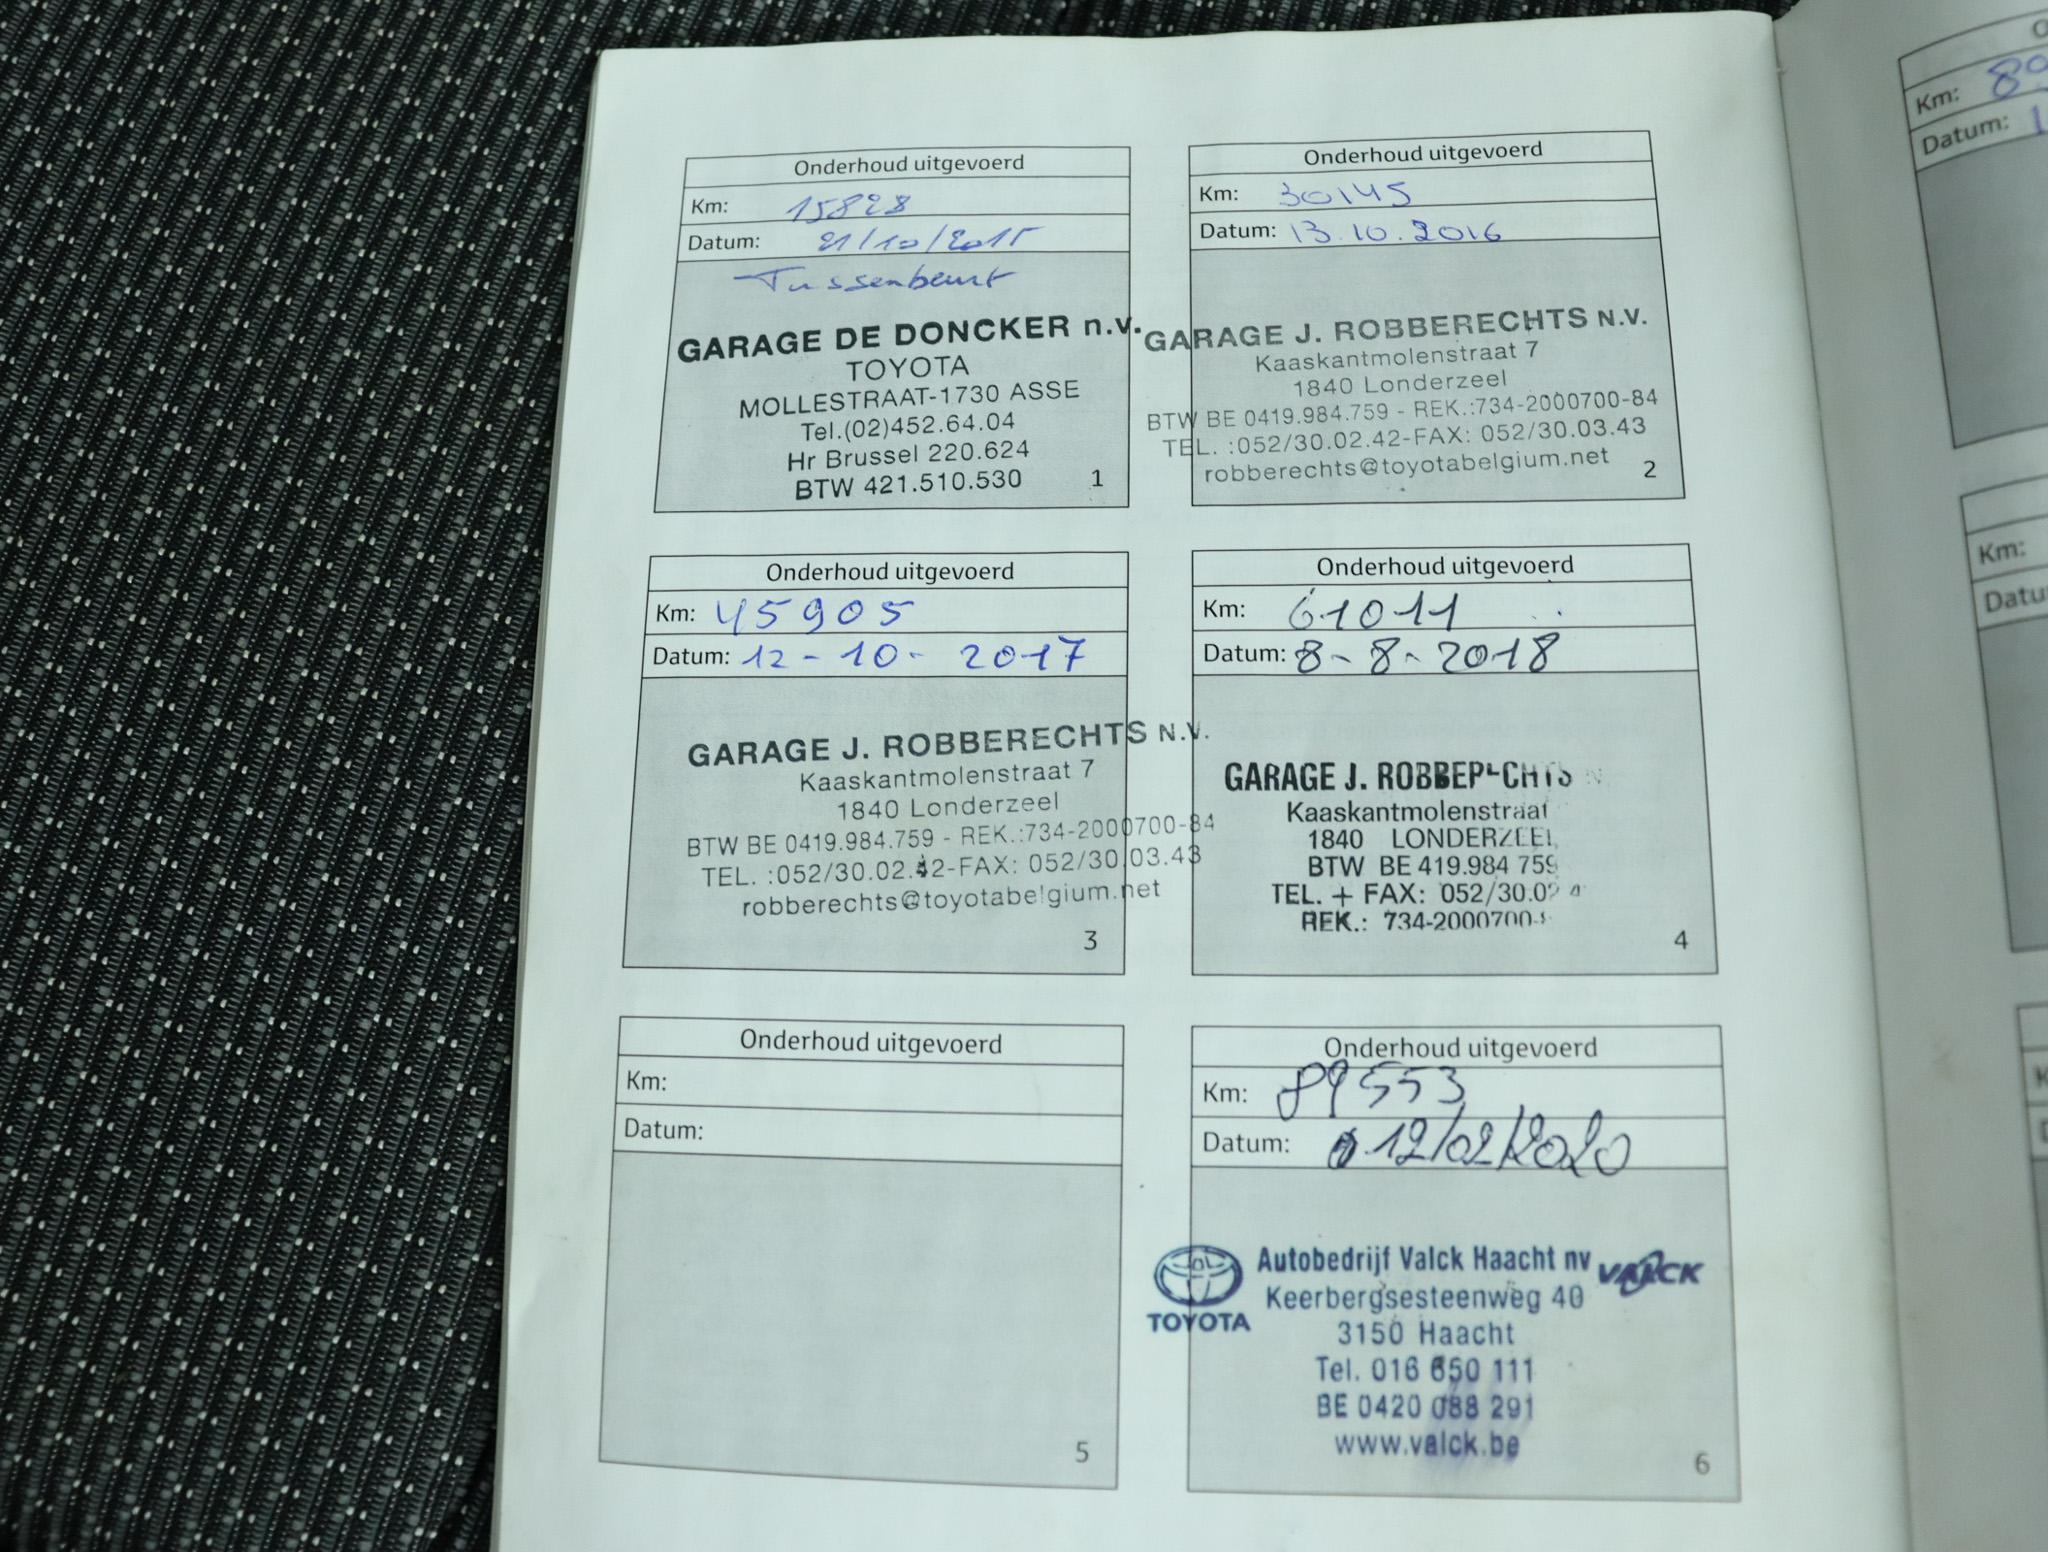 Onderhoud uitgevoerd
Km: 15828
Datum: 21/10/2015
Tussenbeurt
GARAGE DE DONCKER n.v.
TOYOTA
MOLLESTRAAT-1730 ASSE
Tel.(02)452.64.04
Hr Brussel 220.624
BTW 421.510.530
1
Onderhoud uitgevoerd
Km: 30145
Datum: 13.10.2016
GARAGE J. ROBBERECHTS N.V.
Kaaskantmolenstraat 7
1840 Londerzeel
BTW BE 0419.984.759 - REK.:734-2000700-84
TEL. :052/30.02.42-FAX: 052/30.03.43
robberechts@toyotabelgium.net
2
Onderhoud uitgevoerd
Km: 45905
Datum: 12-10-2017
GARAGE J. ROBBERECHTS N.V.
Kaaskantmolenstraat 7
1840 Londerzeel
BTW BE 0419.984.759 - REK.:734-2000700-84
TEL. :052/30.02.42-FAX: 052/30.03.43
robberechts@toyotabelgium.net
3
Onderhoud uitgevoerd
Km: 61011
Datum: 8-8-2018
GARAGE J. ROBBERECHTS
Kaaskantmolenstraat
1840 LONDERZEEL
BTW BE 419.984 759
TEL. + FAX: 052/30.02
REK.: 734-2000700-
4
Onderhoud uitgevoerd
Km:
Datum:
5
Onderhoud uitgevoerd
Km: 89553
Datum: 12/02/2020
TOYOTA
Autobedrijf Valck Haacht nv VALCK
Keerbergsesteenweg 40
3150 Haacht
Tel. 016 650 111
BE 0420 088 291
www.valck.be
6
Km:
Datum:
Km:
Datu